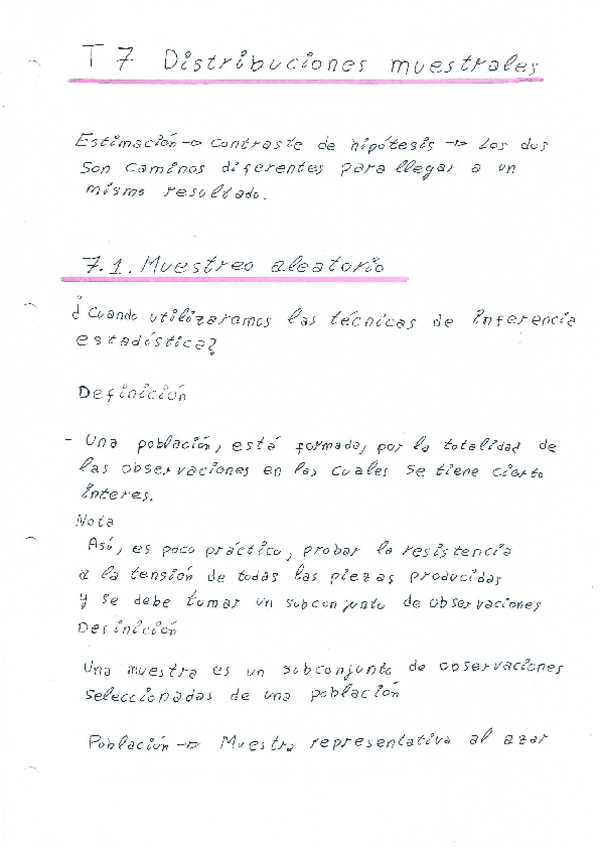 T 7 Distribuciones muestrales
Estimación → Contraste de hipótesis → Los dos
son caminos diferentes para llegar a un
mismo resultado.
7.1. Muestreo aleatorio
¿Cuando utilizaramos las técnicas de inferencia
estadística?
Definición
- Una población, está formada, por la totalidad de
las observaciones en las cuales se tiene cierto
interes.
Nota
Así, es poco práctico, probar la resistencia
a la tensión de todas las piezas producidas
y se debe tomar un subconjunto de observaciones
Definición
Una muestra es un subconjunto de observaciones
seleccionadas de una población
Población → Muestra representativa al azar